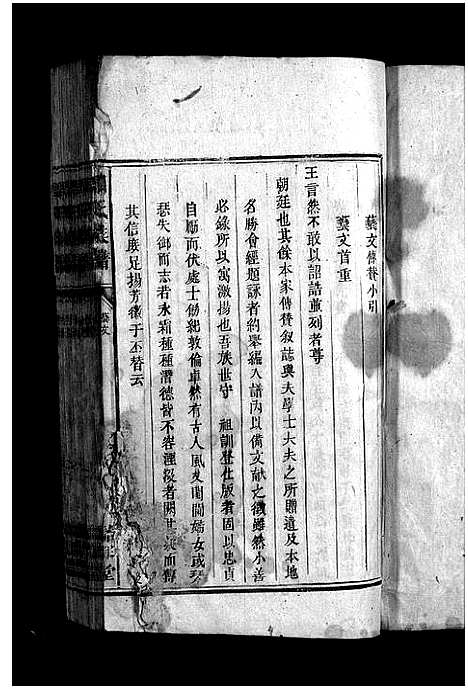 藝文傳贊小引
藝文首重
王言然不敢以詔誥並列者尊
朝廷也其餘本家傳贊叙誌與夫學士大夫之所贈遺及本地
名勝會經題詠者約畧編入譜內以備文献之徵雖然小善
必錄所以寓激揚也吾族世守 祖訓登仕版者固以忠貞
自勵而伏處士飭紀敦倫卓然有古人風及閨閫婦女或琴
瑟失御而志若氷霜種種潛德皆不容湮沒者闕其疑而傳
其信庶足揚芳徽于丕替云
族譜
藝文
堂